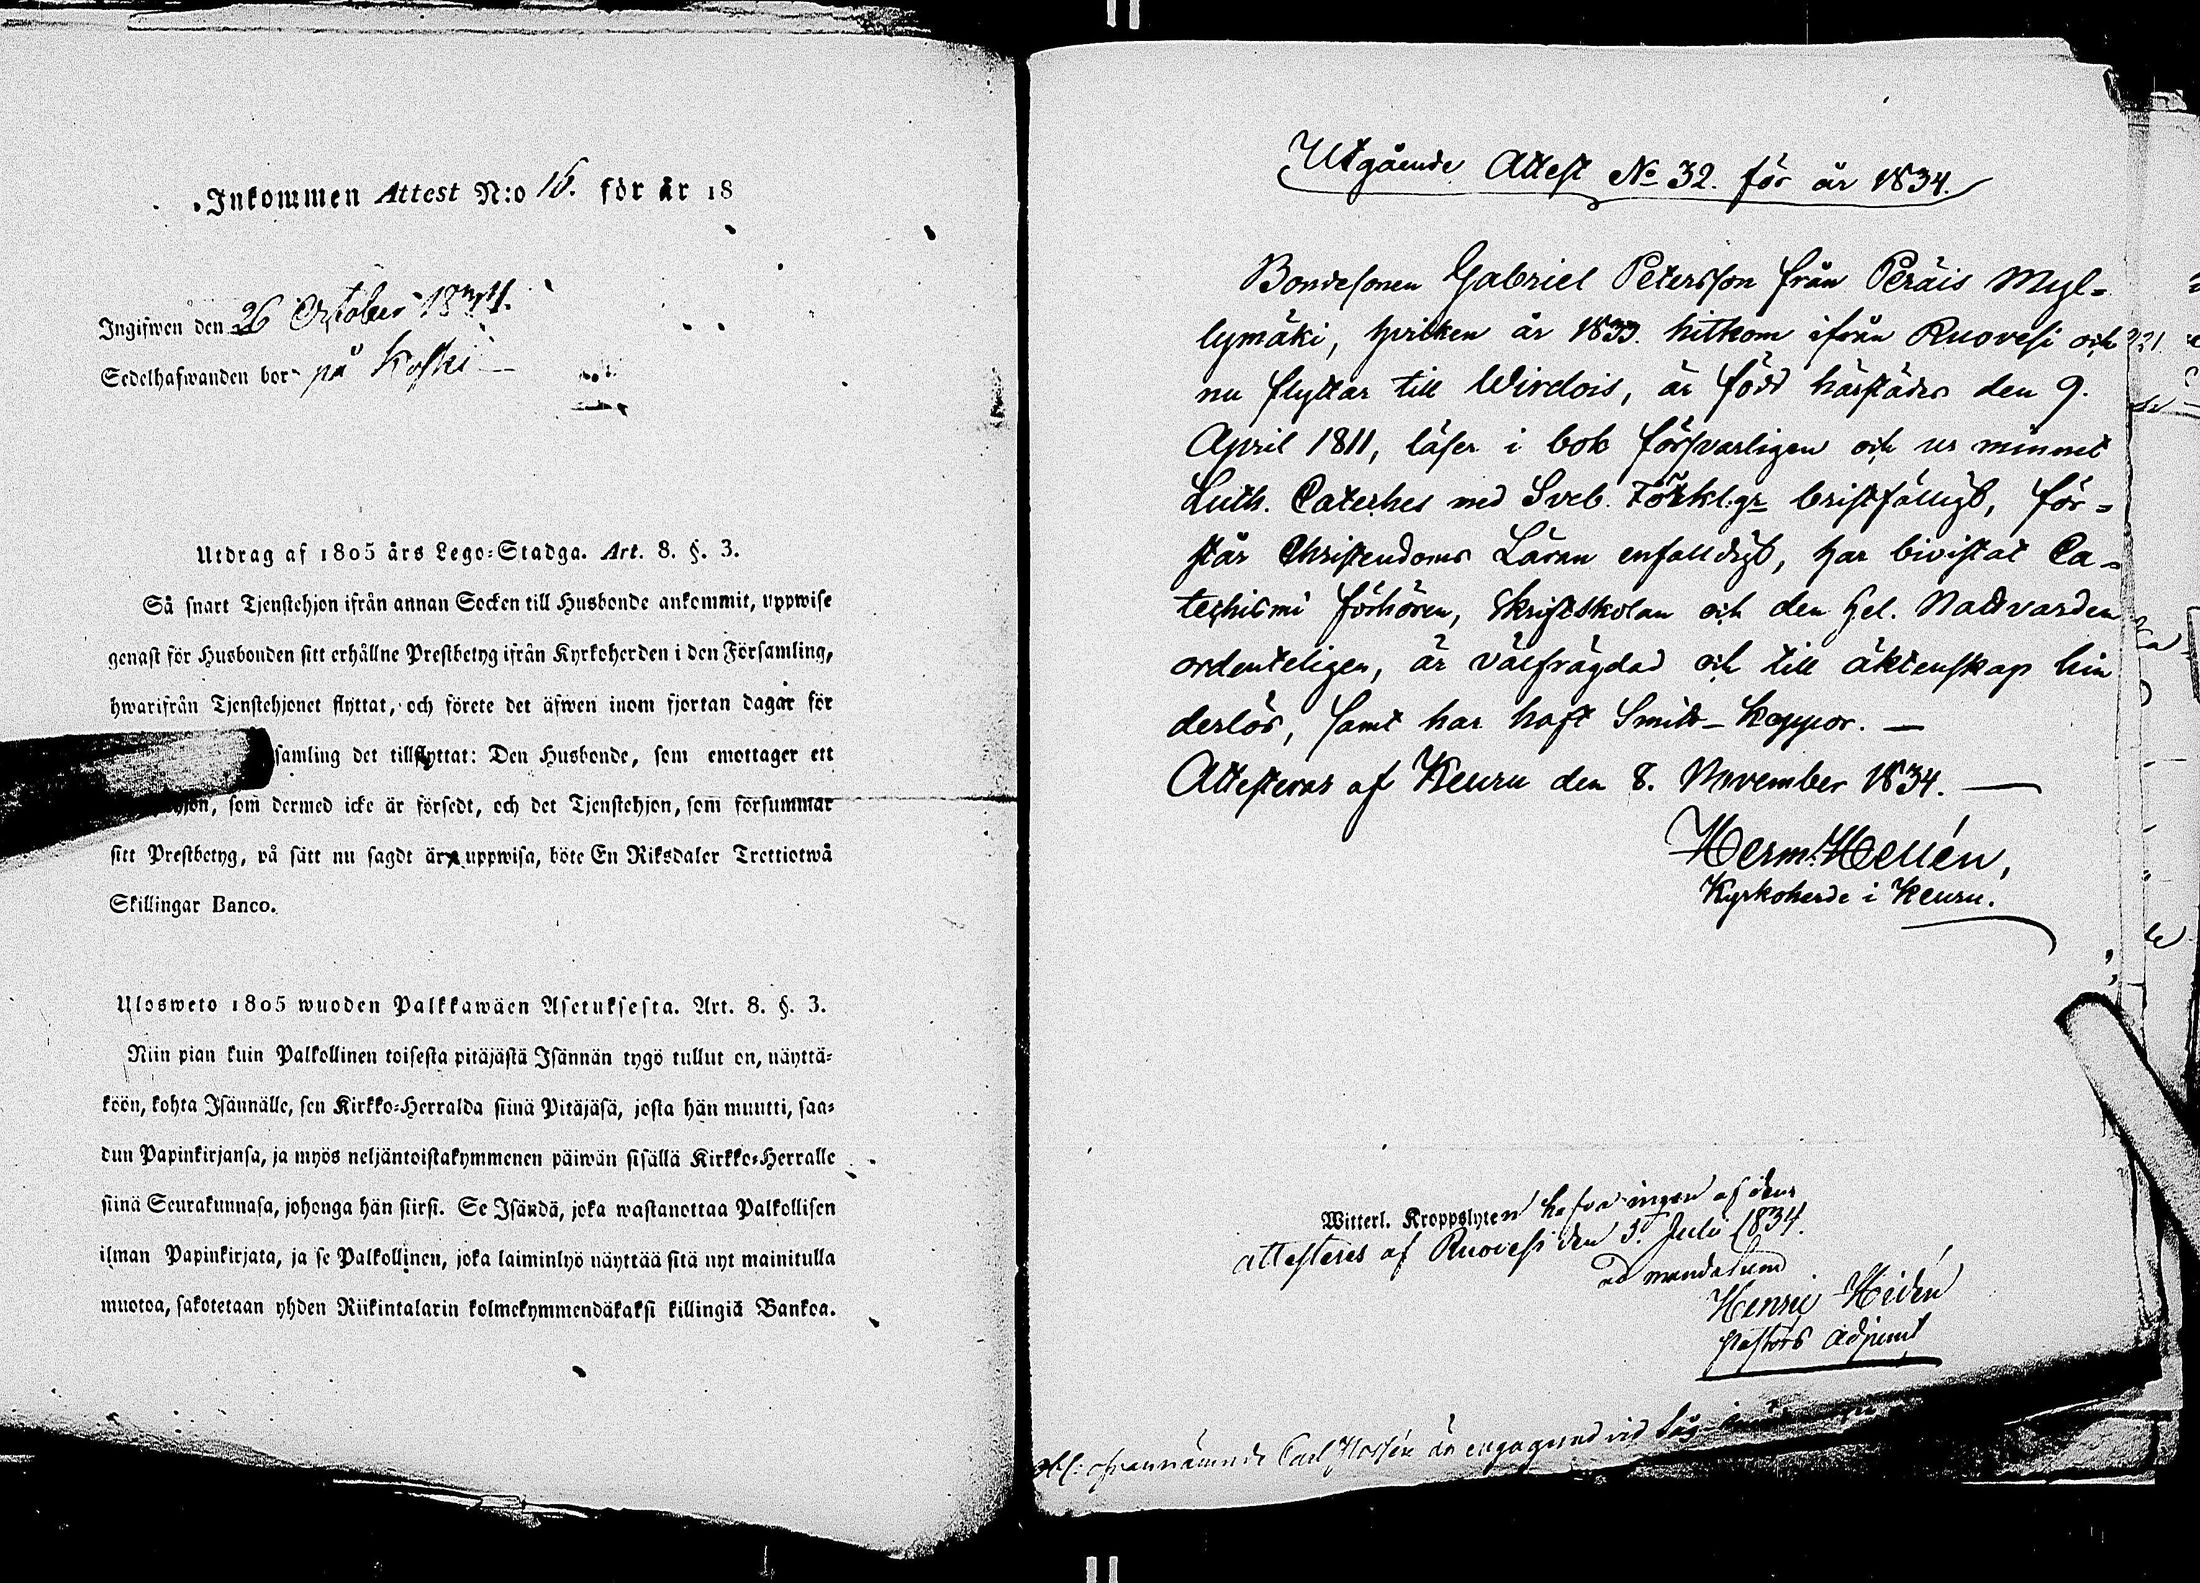 Inkommen Attest N:o 16. för år 18
Ingifwen den 26 October 1834.
Sedelhafwanden bor på Koski
Utdrag af 1805 års Lego-Stadga. Art. 8. §. 3.
Så snart Tjenstehjon ifrån annan Socken till Husbonde ankommit, uppwise
genast för Husbonden sitt erhållne Prestbetyg ifrån Kyrkoherden i den Församling,
hwarifrån Tjenstehjonet flyttat, och förete det äfwen inom fjortan dagar för
samling det tillflyttat: Den Husbonde, som emottager ett
hjon, som dermed icke är försedt, och det Tjenstehjon, som försummar
sitt Prestbetyg, på sätt nu sagdt är, uppwisa, böte En Riksdaler Trettiotwå
Skillingar Banco.
Ulosweto 1805 wuoden Palkkawäen Asetuksesta. Art. 8. §. 3.
Niin pian kuin Palkollinen toisesta pitäjästä Isännän tygö tullut on, näyttä-
köön, kohta Isännälle, sen Kirkko-Herralda siinä Pitäjäsä, josta hän muutti, saa-
dun Papinkirjansa, ja myös neljäntoistakymmenen päiwän sisällä Kirkko-Herralle
siinä Seurakunnasa, johonga hän siirsi. Se Isändä, joka wastanottaa Palkollisen
ilman Papinkirjata, ja se Palkollinen, joka laiminlyö näyttää sitä nyt mainitulla
muotoa, sakotetaan yhden Riikintalarin kolmekymmendäkaksi killingiä Bankoa.
Utgående Attest No 32. för år 1834.
Bondesonen Gabriel Petersson från Peräis Myl-
lymäki, hvilken år 1833. hitkom ifrån Ruovesi och
nu flyttar till Wirdois, är född härstädes den 9.
April 1811, läser i bok försvarligen och ur minnet
Luth. Cateches med Sveb. Förklgr bristfälligt, för-
står Christendoms Läran enfalldigt, har bivistat Ca-
techismi förhören, Skriftskolan och den Hel. Nattvarden
ordenteligen, är välfrägdad och till äktenskap hin
derlös, samt har haft Smitt-koppor. —
Attesteras af Keuru den 8. November 1834. —
Herm: Hellén,
Kyrkoherde i Keuru.
Witterl. Kroppslyten hafva ingen af dem
attesteres af Ruovesi den 5. Julii 1834.
ad mandatum
Henric Hidén
Pastors Adjunct
ofvannämnde Carl är engagerad vid